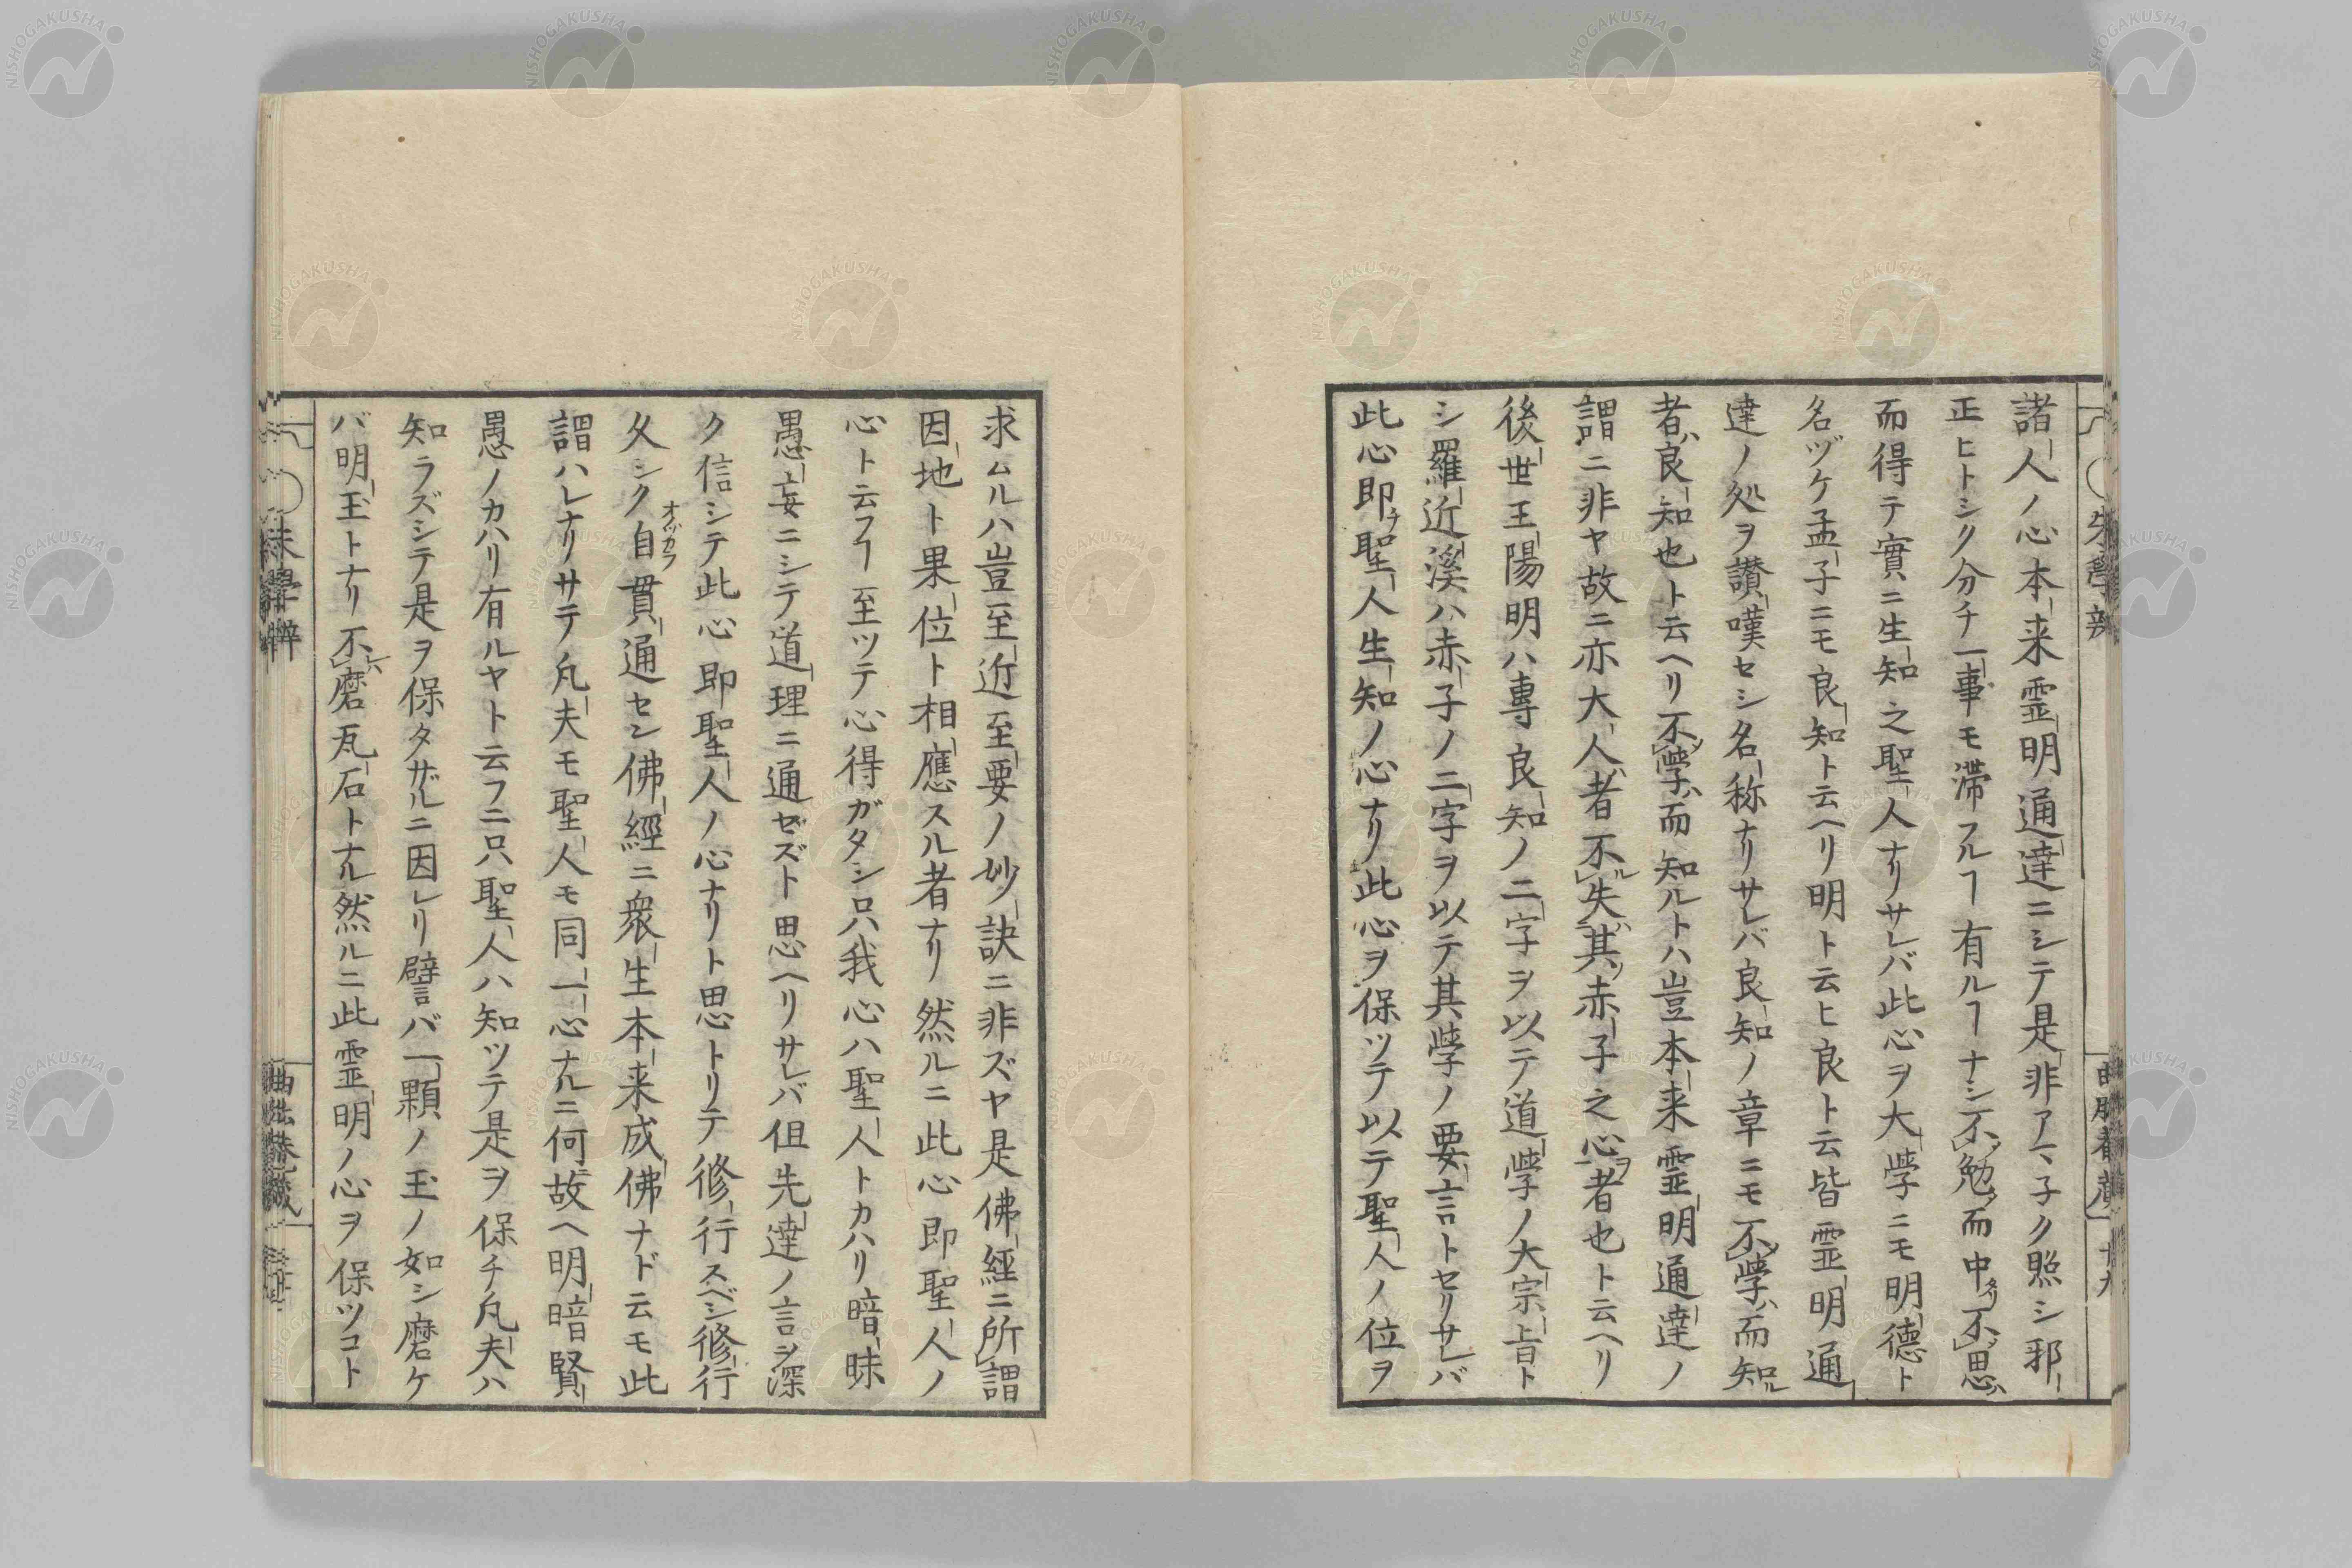 諸人ノ心本来霊明通達ニシテ是非アマ子ク照シ邪
正ヒトシク分チ一事モ滞フルヿ有ルヿナシ不勉而中不思
而得テ實ニ生知之聖人ナリサレバ此心ヲ大學ニモ明德ト
名ヅケ孟子ニモ良知ト云ヘリ明ト云ヒ良ト云皆霊明通
達ノ処ヲ讃嘆セシ名称ナリサレバ良知ノ章ニモ不學而知ル
者ハ良知也ト云ヘリ不學而知ルトハ豈本来霊明通達ノ
謂ニ非ヤ故ニ亦大人者不失其赤子之心者也ト云ヘリ
後世王陽明ハ専良知ノ二字ヲ以テ道學ノ大宗旨ト
シ羅近溪ハ赤子ノ二字ヲ以テ其學ノ要言トセリサレバ
此心即チ聖人生知ノ心ナリ此心ヲ保ツテ以テ聖人ノ位ヲ
求ムルハ豈至近至要ノ妙訣ニ非ズヤ是佛經ニ所謂
因地ト果位ト相應スル者ナリ然ルニ此心即聖人ノ
心ト云フヿ至ツテ心得ガタシ只我心ハ聖人トカハリ暗昧
愚妄ニシテ道理ニ通ゼズト思ヘリサレバ但先達ノ言ヲ深
ク信シテ此心即聖人ノ心ナリト思トリテ修行スベシ修行
久シク自オノヅカラ貫通セン佛經ニ衆生本来成佛ナド云モ此
謂ハレナリサテ凡夫モ聖人モ同一心ナルニ何故ヘ明暗賢
愚ノカハリ有ルヤト云フニ只聖人ハ知ツテ是ヲ保チ凡夫ハ
知ラズシテ是ヲ保タザルニ因レリ譬バ一顆ノ玉ノ如シ磨ケ
バ明玉トナリ不磨瓦石トナル然ルニ此霊明ノ心ヲ保ツコト